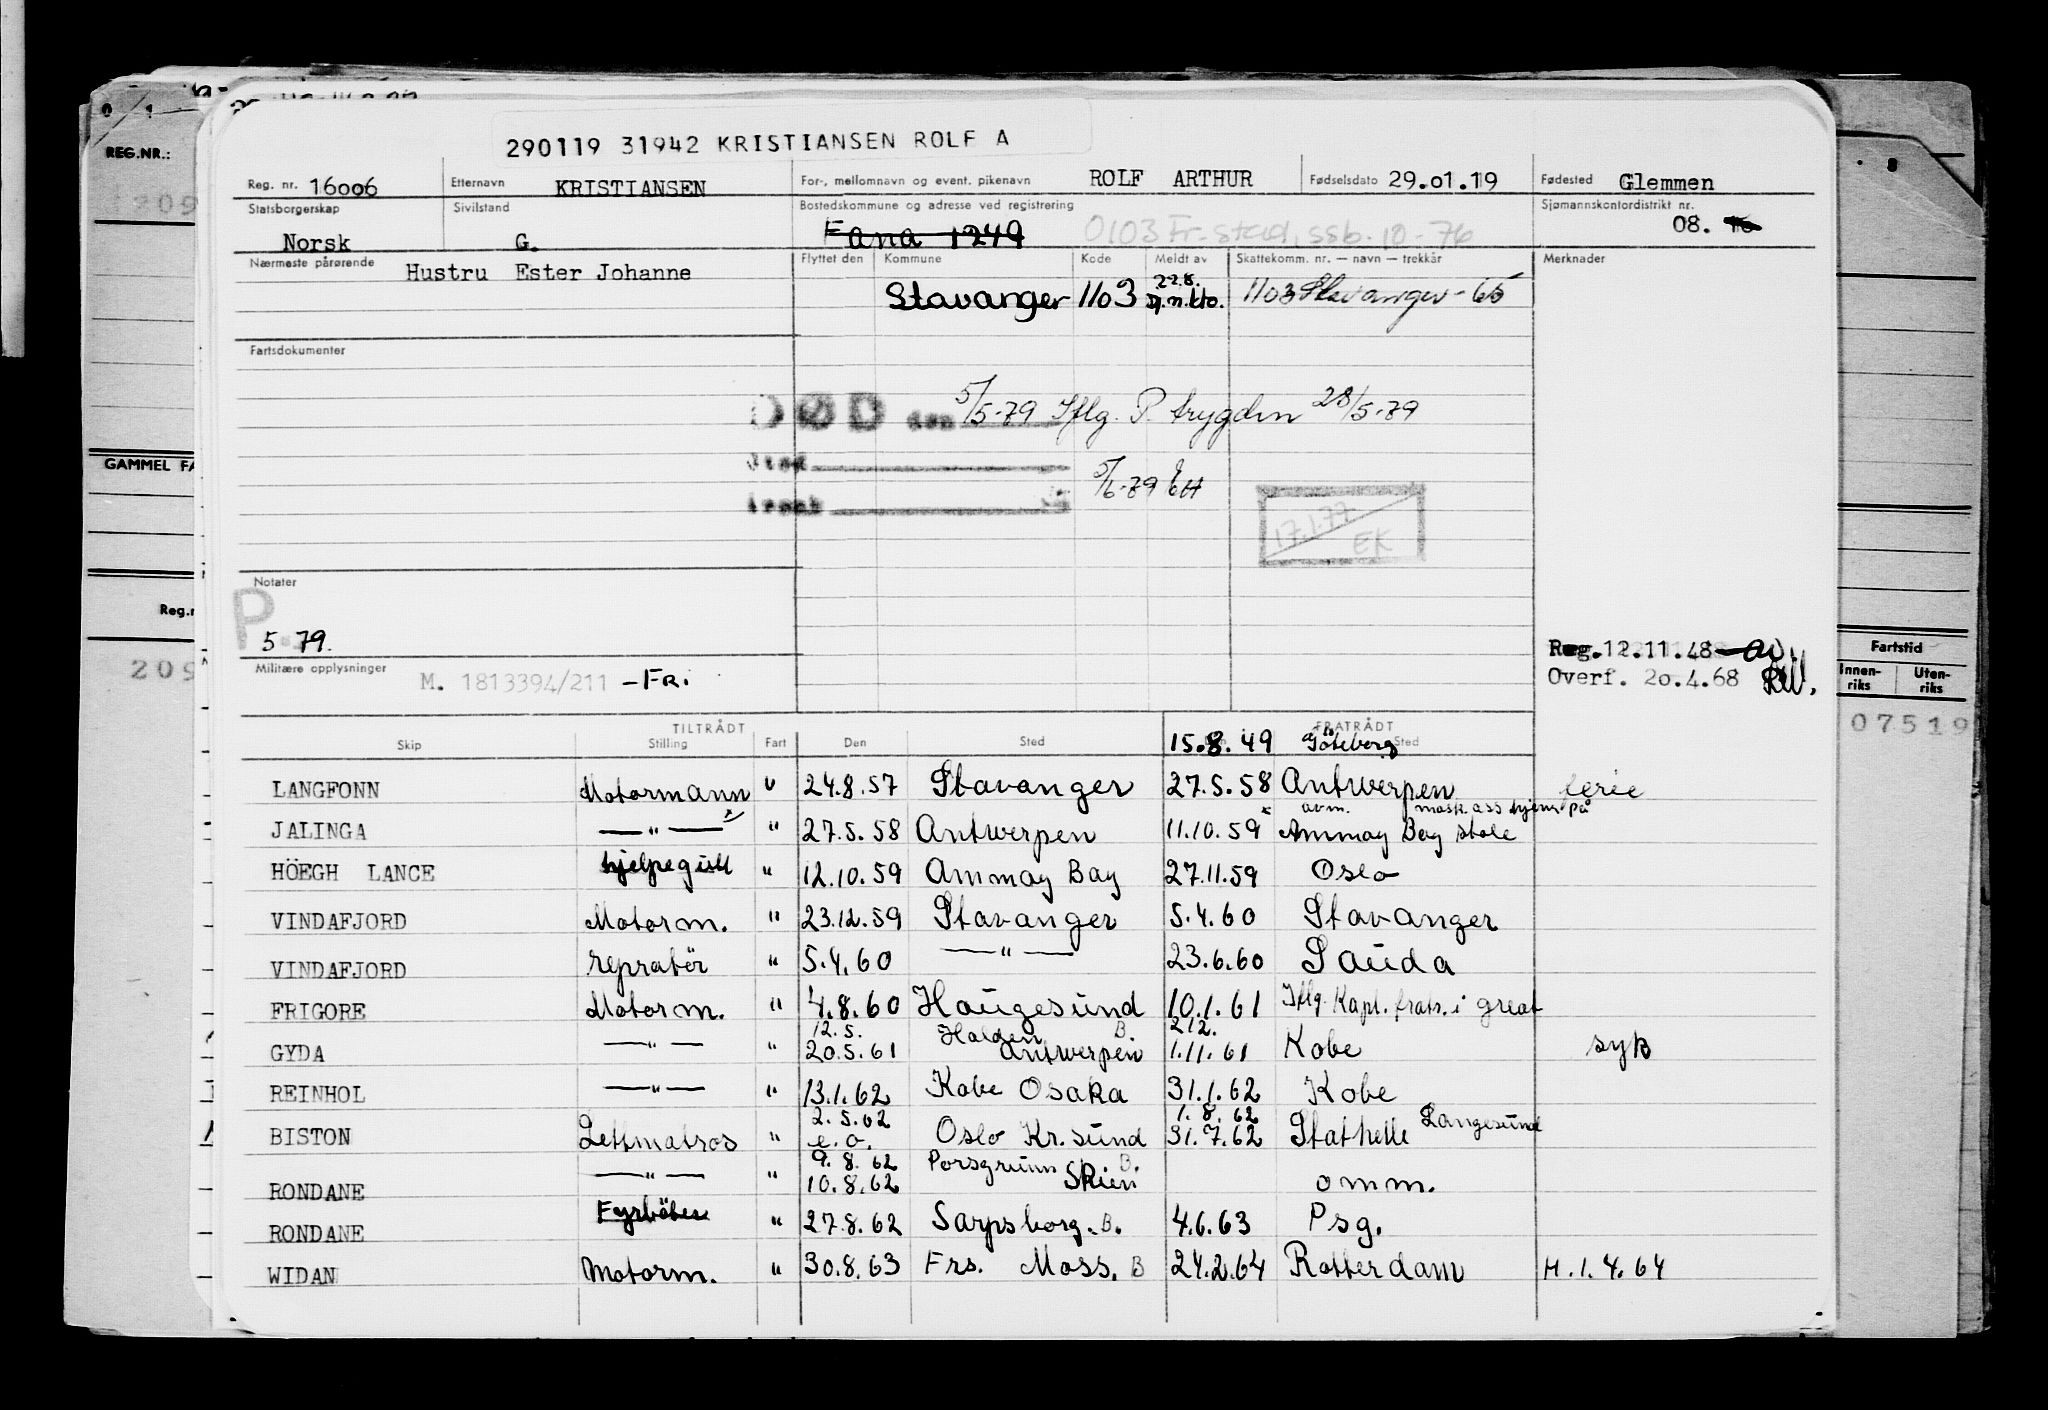 290119 31942 KRISTIANSEN ROLF A
REG.NR.:
Reg. nr. 16006 Etternavn KRISTIANSEN For-, mellomnavn og event. pikenavn ROLF ARTHUR Fødselsdato 29.01.19 Fødested Glemmen
Statsborgerskap Norsk Sivilstand G. Bostedskommune og adresse ved registrering Fana 1249 0103 Fr-stad, ssb. 10-76 Sjømannskontordistrikt nr. 08.
Nærmeste pårørende Hustru Ester Johanne Flyttet den Kommune Kode Meldt av Skattekomm. nr. — navn — trekkår Merknader
Stavanger 1103 22.8. Sj.m.kto. 1103 Stavanger - 65
Fartsdokumenter
DØD den 5/5-79 Iflg. P. trygden 28/5-79
5/6-79
17.1.77
EK
GAMMEL FA
Notater
P
5-79.
Reg.n
Reg. 12.11.48
Militære opplysninger M. 1813394/211 - FRi Overf. 20.4.68
Fartstid
Innen-riks Uten-riks
209
07519
TILTRÅDT FRATRÅDT
Skip Stilling Fart Den Sted 15.8.49 Göteborg Sted
LANGFONN Motormann U 24.8.57 Stavanger 27.5.58 Antwerpen ferie
avm. mask.ass tjen. på
JALINGA —"— x " 27.5.58 Antwerpen 11.10.59 x Ammay Bay
HÖEGH LANCE hjelpegutt " 12.10.59 Ammay Bay 27.11.59 Oslo
VINDAFJORD Motorm. " 23.12.59 Stavanger 5.4.60 Stavanger
VINDAFJORD repratör " 5.4.60 —"— 23.6.60 Sauda
FRIGORE Motorm. " 4.8.60 Haugesund 10.1.61 Iflg. Kapt. fratr. i great
12.5. Halden B. 2.12.
GYDA —"— " 20.5.61 Antwerpen 1.11.61 Kobe syk
REINHOL —"— " 13.1.62 Kobe Osaka 31.1.62 Kobe
2.5.62 1.8.62 Langesund
BISTON Lettmatros " e.o. Oslo Kr.sund 31.7.62 Stathelle
9.8.62 Porsgrunn B.
RONDANE —"— " 10.8.62 Skien omm.
RONDANE Fyrböter " 27.8.62 Sarpsborg. B. 4.6.63 Psg.
WIDAN Motorm. " 30.8.63 Frs. Moss. B 24.2.64 Rotterdam H. 1.4.64